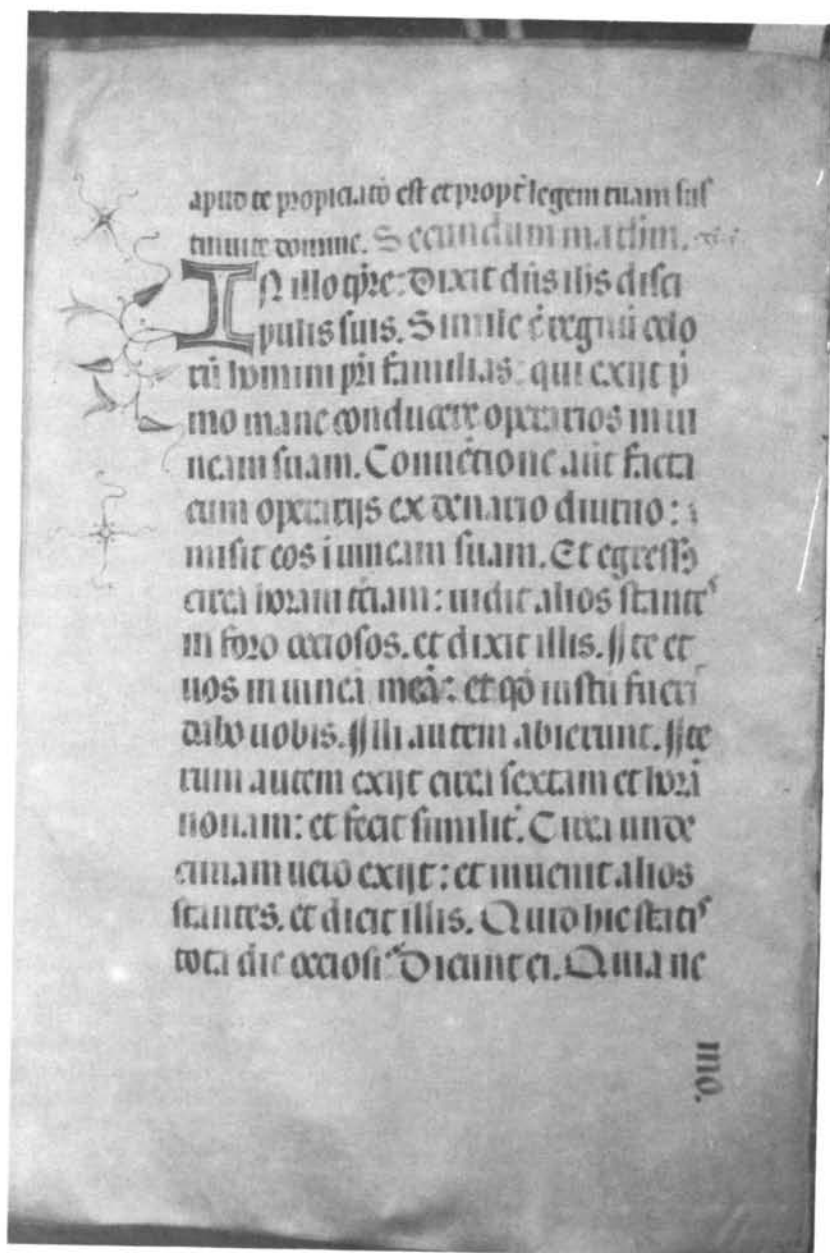 apud te propiciatō est et propt̄ legem tuam sus
tinui te domine. Secundum mathm.
IN illo tp̄re: Dixit dn̄s ih̄s disci
pulis suis. Simile ē regnū celo
rū homini pr̄i familias: qui exijt p̄
mo mane conducere operarios in ui
neam suam. Conuētione aūt facta
cum operarijs ex denario diurno:
misit eos ī uineam suam. Et egressꝰ
circa horam tc̄iam: uidit alios stantes
in foro occiosos. et dixit illis. Ite et
uos in uineā meā: et qd̄ iustū fuerit
dabo uobis. Illi autem abierunt. Ite
rum autem exijt circa sextam et horā
nonam: et fecit similit̄. Circa unde
cimam uero exijt: et inuenit alios
stantes. et dicit illis. Quid hic statis
tota die occiosi? Dicunt ei. Quia ne
mo.